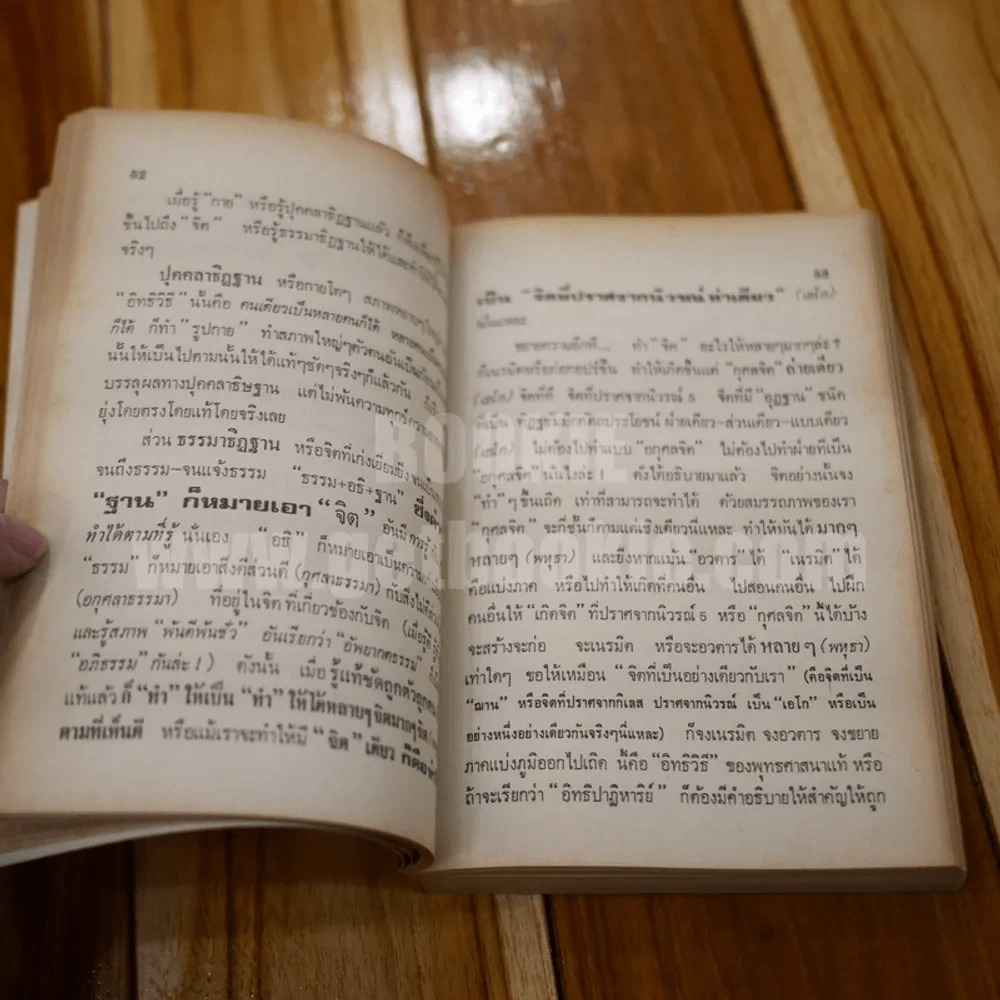 ๕๒
เมื่อรู้ "กาย" หรือรู้ปุคคลาธิฏฐานแล้ว ก็
ขึ้นไปถึง "จิต" หรือรู้ธรรมาธิฏฐานให้ได้และ
จริงๆ
ปุคคลาธิฏฐาน หรือกายใดๆ สภาพหลายๆ
"อิทธิวิธี" นั้นคือ คนเดียวเป็นหลายคนก็ได้ หลายคน
ก็ได้ ก็ทำ "รูปกาย" ทำสภาพใหญ่ๆตัวตนอันเป็น
นั้นให้เป็นไปตามนั้นให้ได้แท้ๆชัดๆจริงๆก็แล้วกัน
บรรลุผลทางปุคคลาธิษฐาน แต่ไม่พ้นความทุกข์
ยุ่งโดยตรงโดยแท้โดยจริงเลย
ส่วน ธรรมาธิฏฐาน หรือจิตที่เก่งเยี่ยมยิ่ง
จนถึงธรรม-จนแจ้งธรรม "ธรรม+อธิ+ฐาน"
"ฐาน" ก็หมายเอา "จิต" อันมี
ทำได้ตามที่รู้ นั่นเอง "อธิ" ก็หมายเอาเป็นความ
"ธรรม" ก็หมายเอาสิ่งดีส่วนดี (กุศลาธรรมา) กับสิ่งไม่ดี
(อกุศลาธรรมา) ที่อยู่ในจิตที่เกี่ยวข้องกับจิต
และรู้สภาพ "พ้นดีพ้นชั่ว" อันเรียกว่า "อัพยากตธรรม"
"อภิธรรม" กันล่ะ!) ดังนั้น เมื่อรู้แท้ชัดถูกตัวถูกตน
แท้แล้ว ก็ "ทำ" ให้เป็น "ทำ" ให้ได้หลายๆจิตมากๆจิต
ตามที่เห็นดี หรือแม้เราจะทำให้มี "จิต" เดียว ก็คือ
๕๓
เป็น "จิตที่ปราศจากนิวรณ์ท่าเดียว" (เอโก)
นั่นแหละ
ขยายความอีกที... ทำ "จิต" อะไรให้หลายๆมากๆล่ะ?
ทำให้เกิดขึ้นแต่ "กุศลจิต" ฝ่ายเดียว
(เอโก) จิตที่ดี จิตที่ปราศจากนิวรณ์ 5 จิตที่มี "อุฏฐาน" ชนิด
ฝ่ายเดียว-ส่วนเดียว-แบบเดียว
(เอโก) ไม่ต้องไปทำแบบ "อกุศลจิต" ไม่ต้องไปทำฝ่ายที่เป็น
"อกุศลจิต" นั่นไงล่ะ! ดังได้อธิบายมาแล้ว จิตอย่างนั้นจง
"ทำ" ๆ ขึ้นเถิด เท่าที่สามารถจะทำได้ ด้วยสมรรถภาพของเรา
"กุศลจิต" จะกี่ชั้นก็ตามแต่เชิงเดียวนี่แหละ ทำให้มันได้ มากๆ
หลายๆ (พหุธา) และยิ่งหากแม้น "อวตาร" ได้ "เนรมิต" ได้
คือแบ่งภาค หรือไปทำให้เกิดที่คนอื่น ไปสอนคนอื่น ไปฝึก
คนอื่นให้ "เกิดจิต" ที่ปราศจากนิวรณ์ 5 หรือ "กุศลจิต" นี้ได้บ้าง
จะสร้างจะก่อ จะเนรมิต หรือจะอวตารได้ หลายๆ (พหุธา)
เท่าใดๆ ขอให้เหมือน "จิตที่เป็นอย่างเดียวกับเรา" (คือจิตที่เป็น
"ฌาน" หรือจิตที่ปราศจากกิเลส ปราศจากนิวรณ์ เป็น "เอโก" หรือเป็น
อย่างหนึ่งอย่างเดียวกันจริงๆนี่แหละ) ก็จงเนรมิต จงอวตาร จงขยาย
ภาคแบ่งภูมิออกไปเถิด นี้คือ "อิทธิวิธี" ของพุทธศาสนาแท้ หรือ
ถ้าจะเรียกว่า "อิทธิปาฏิหาริย์" ก็ต้องมีคำอธิบายให้สำคัญให้ถูก